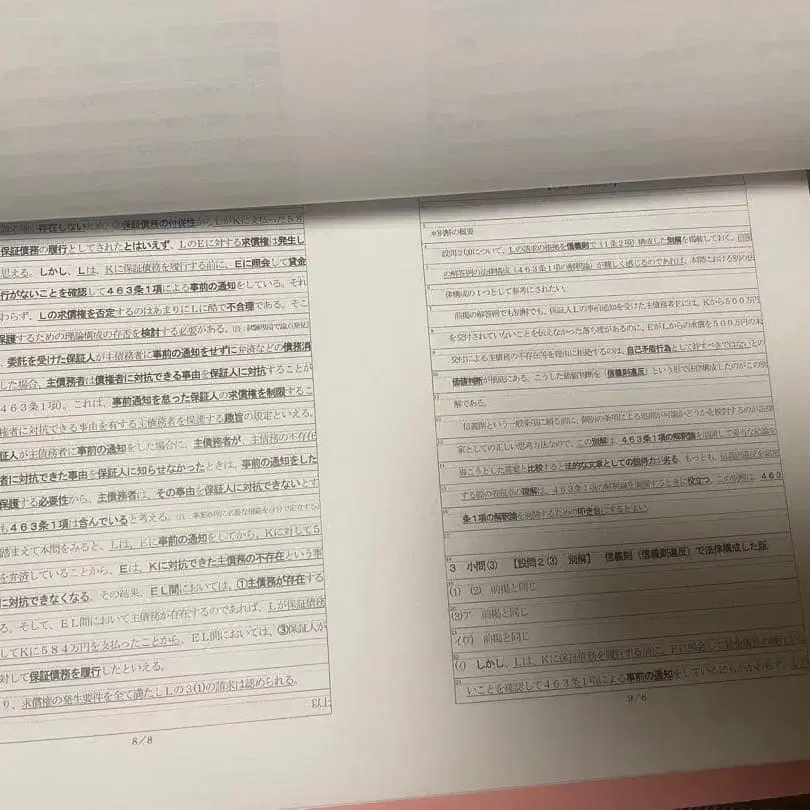 存在しないため、保証債務の付従性からLがKに支払った58
保証債務の履行としてされたとはいえず、LのEに対する求償権は発生し
思える。しかし、Lは、Kに保証債務を履行する前に、Eに照会して貸金
行がないことを確認して463条1項による事前の通知をしている。それ
わらず、Lの求償権を否定するのはあまりにLに酷で不合理である。そこ
保護するための理論構成の存否を検討する必要がある。
、委託を受けた保証人が主債務者に事前の通知をせずに弁済などの債務消
した場合、主債務者は債権者に対抗できる事由を保証人に対抗することが
463条1項)。これは、事前通知を怠った保証人の求償権を制限するこ
権者に対抗できる事由を有する主債務者を保護する趣旨の規定といえる。
証人が主債務者に事前の通知をした場合に、主債務者が、主債務の不存在
者に対抗できた事由を保証人に知らせなかったときは、事前の通知をした
保護する必要性から、主債務者は、その事由を保証人に対抗できないとす
も463条1項は含んでいると考える。
踏まえて本問をみると、Lは、Eに事前の通知をしてから、Kに対して5
を弁済していることから、Eは、Kに対抗できた主債務の不存在という事
に対抗できなくなる。その結果、EL間においては、①主債務が存在する
る。そして、EL間において主債務が存在するのであれば、Lが保証債務
してKに584万円を支払ったことから、EL間においては、③保証人が
対して保証債務を履行したといえる。
り、求償権の発生要件を全て満たしLの3(1)の請求は認められる。
以上
8/8
*別解の概要
設問2(3)について、Lの請求の根拠を信義則で(1条2項)構成した別解を掲載しておく。前掲
の解答例の法律構成(463条1項の解釈論)が難しく感じるのであれば、本問における別の法
律構成の1つとして参考にされたい。
前掲の解答例でも別解でも、保証人Lの事前通知を受けた主債務者Eには、Kから500万円
を交付されていないことを伝えなかった落ち度があるのに、EがLからの求償を500万円の未
交付による主債務の不存在等を理由に拒絶するのは、自己矛盾行為として許すべきではないとの
価値判断が根底にある。こうした価値判断を「信義則違反」という形で法律構成したのがこの別
解である。
信義則という一般条項に頼る前に、個別の条項による処理が可能かどうかを検討するのが法律
家としての正しい思考方法なので、この別解は、463条1項の解釈論を展開して妥当な結論を
導こうとした答案と比較すると法的な文章としての説得力が劣る。もっとも、信義則違反を認定
する際の着眼点の理解は、463条1項の解釈論を展開するときに役立つ。この別解は、463
条1項の解釈論を展開するための叩き台にするとよい。
3 小問(3) 【設問2(3) 別解】 信義則(信義則違反)で法律構成した版
(1) (2) 前掲と同じ
(3)ア 前掲と同じ
イ(ア) 前掲と同じ
(イ) しかし、Lは、Kに保証債務を履行する前に、Eに照会して貸金債務の履行がな
いことを確認して463条1項による事前の通知をしているにもかかわらず、
9/6